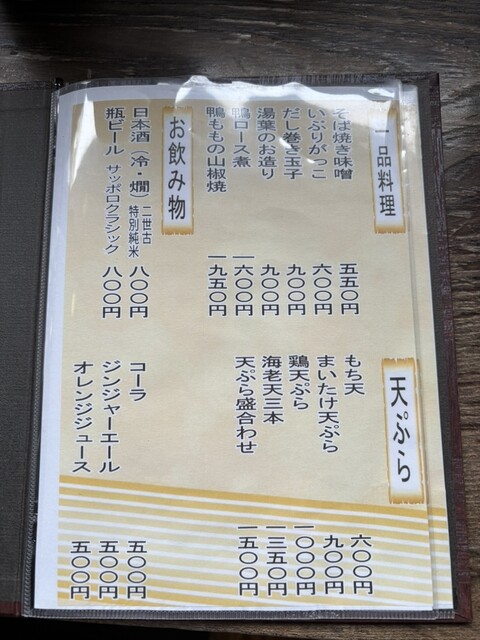 一品料理
そば焼き味噌 五五〇円
いぶりがっこ 六〇〇円
だし巻き玉子 九〇〇円
湯葉のお造り 九〇〇円
鴨ロース煮 一六〇〇円
鴨ももの山椒焼 一九五〇円
天ぷら
もち天 六〇〇円
まいたけ天ぷら 九〇〇円
鶏天ぷら 一〇〇〇円
海老天三本 一三五〇円
天ぷら盛合わせ 一五〇〇円
お飲み物
日本酒(冷・燗) 二世古 特別純米 八〇〇円
瓶ビール サッポロクラシック 八〇〇円
コーラ 五〇〇円
ジンジャーエール 五〇〇円
オレンジジュース 五〇〇円